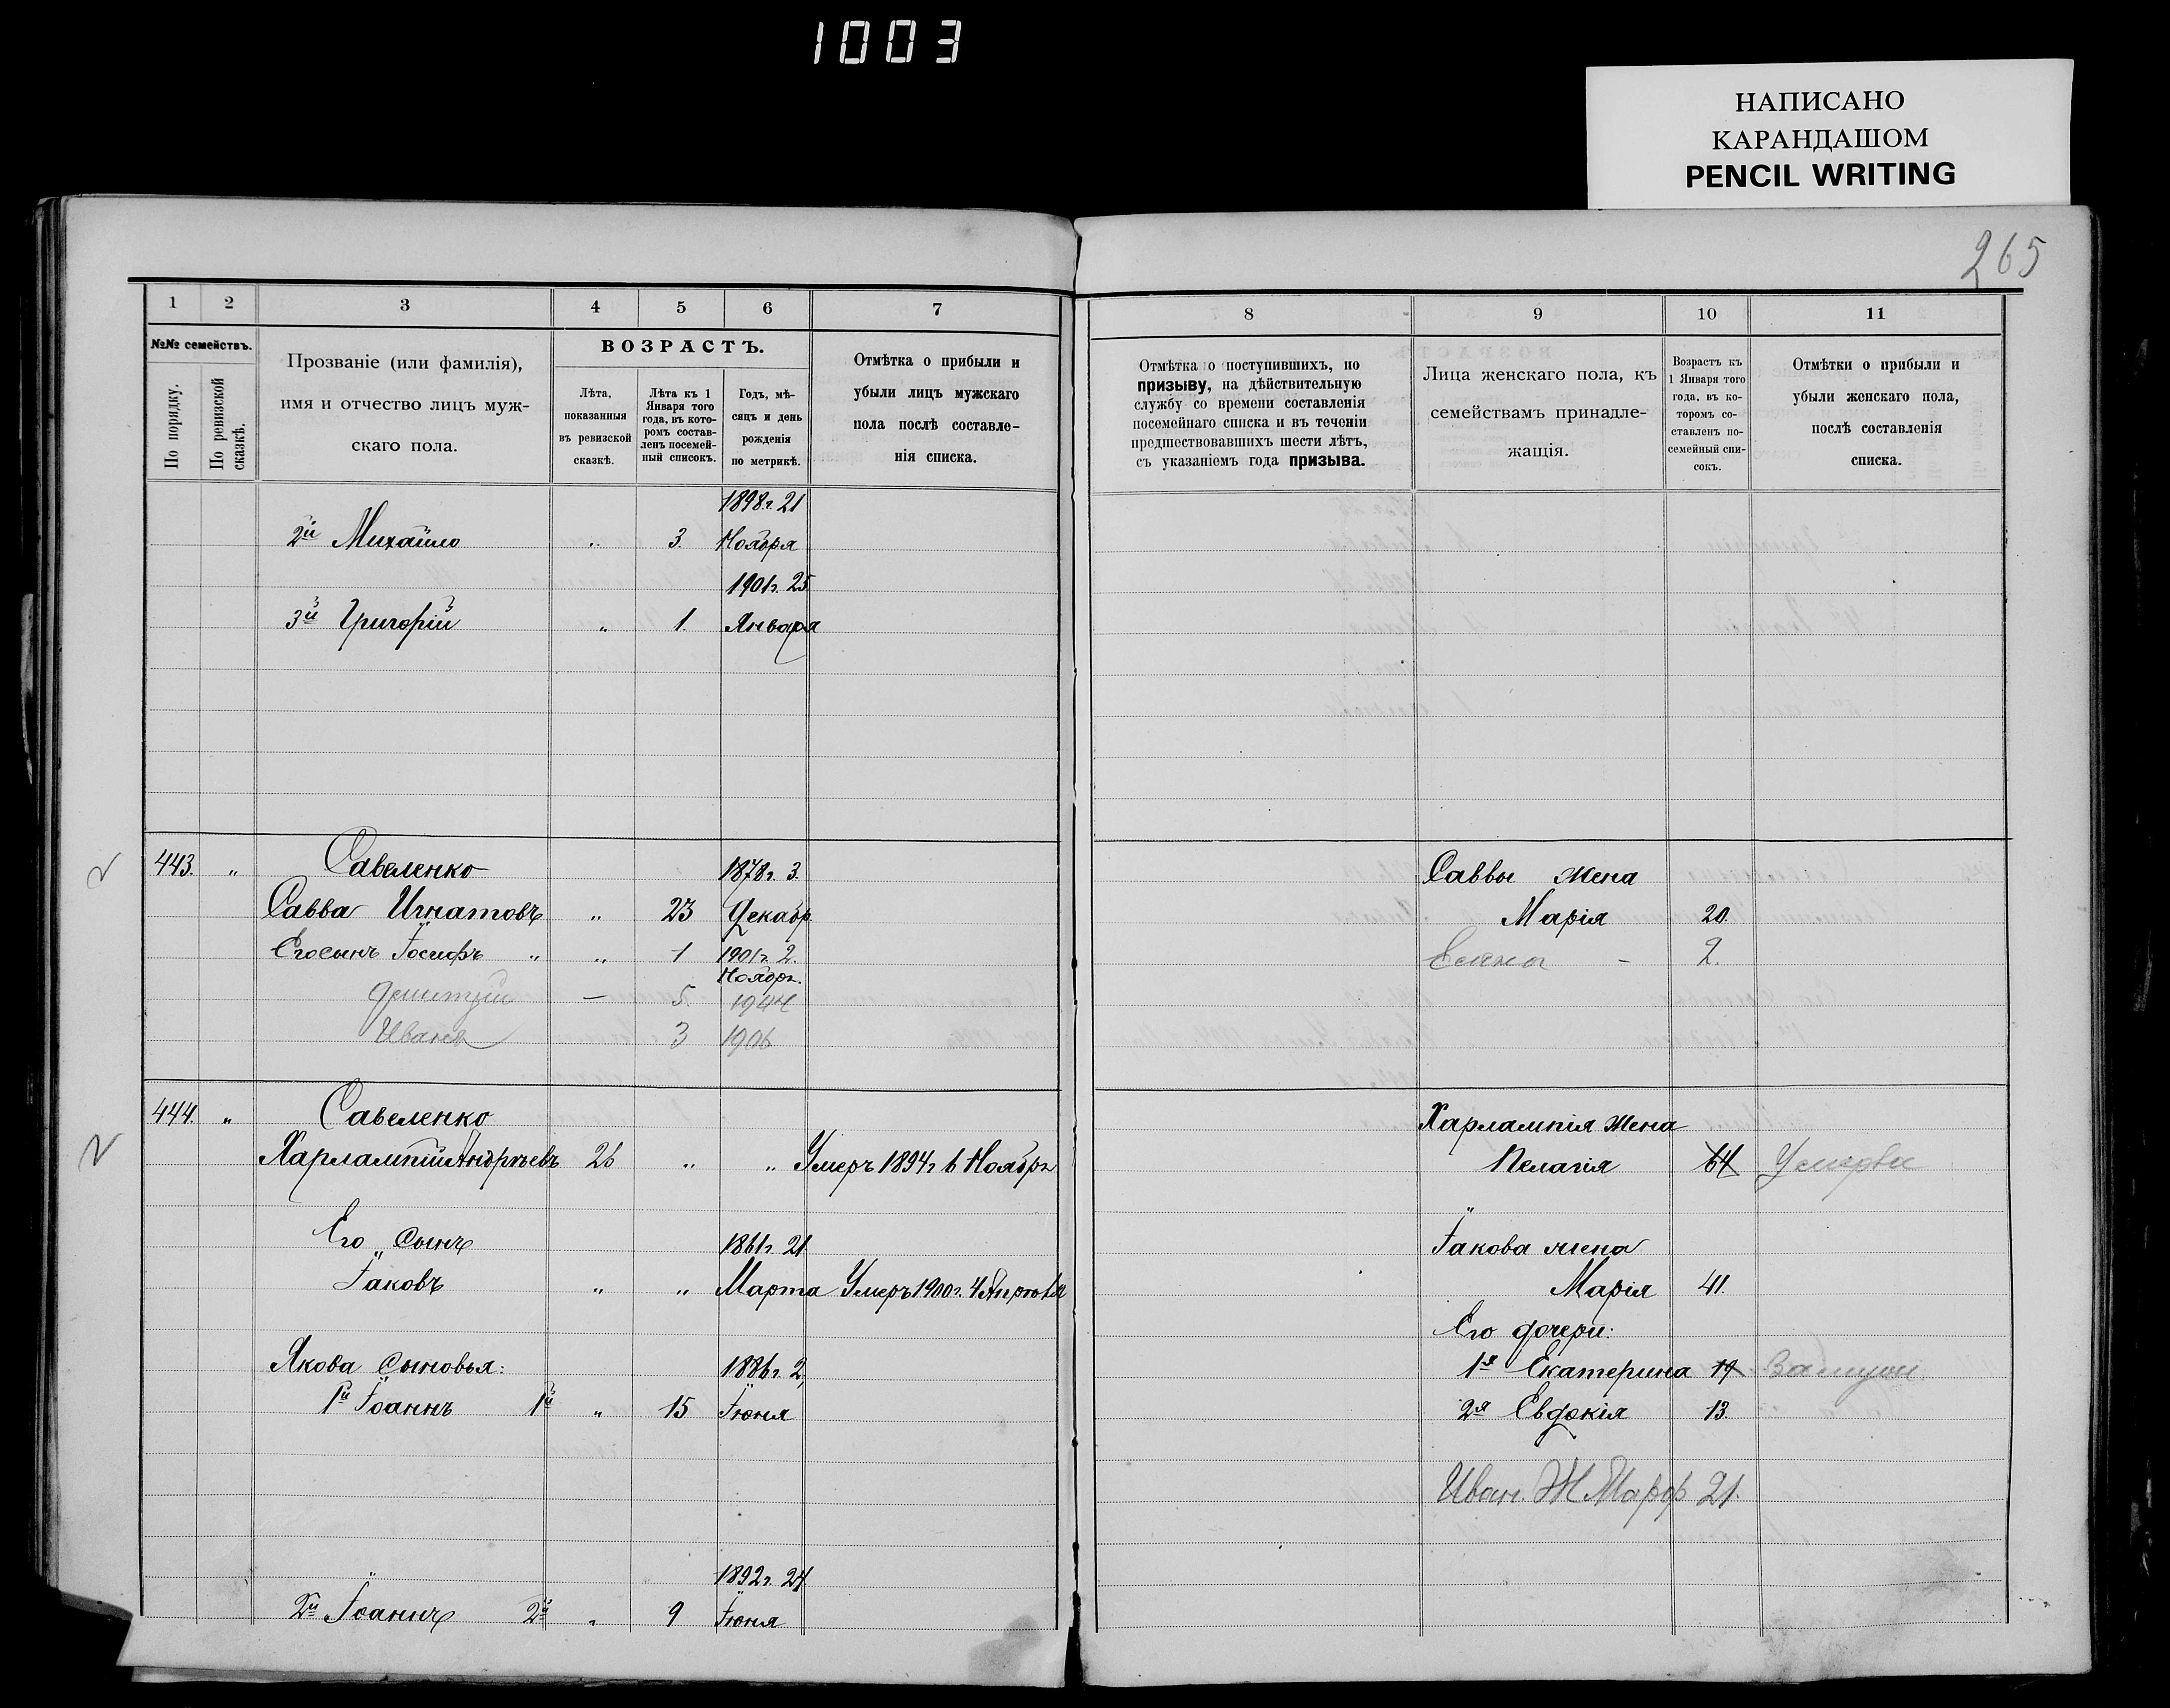 1003
НАПИСАНО
КАРАНДАШОМ
PENCIL WRITING
265
1 2 3 4 5 6 7
№№ семействъ.
По порядку.
По ревизской сказкѣ.
Прозваніе (или фамилія),
имя и отчество лицъ муж-
скаго пола.
ВОЗРАСТЪ.
Лѣта,
показанныя
въ ревизской
сказкѣ.
Лѣта къ 1
Января того
года, въ кото-
ромъ состав-
ленъ посемей-
ный списокъ.
Годъ, мѣ-
сяцъ и день
рожденія
по метрикѣ.
Отмѣтка о прибыли и
убыли лицъ мужскаго
пола послѣ составле-
нія списка.
1898г. 21
2й Михаило " 3. Ноября
1901г. 25
3й Григорій " 1. Января
443. " Савеленко 1878г. 3.
Савва Игнатовъ " 23 Декабр
Его сынъ Іосифъ " " 1 1901г. 2.
Ноябр.
Дмитрій — 5. 1944
Иванъ 3 1906
444. " Савеленко
Харлампій Андреевъ 26 " " Умеръ 1894г 6 Ноябр
Его сынъ 1861г. 21
Іаковъ " " Марта Умеръ 1900г. 4 Апрѣля
Якова сыновья: 1886г. 2,
1й Іоаннъ 1й " 15 Іюня
1892г. 24.
2й Іоаннъ 2й " 9 Іюня
8 9 10 11
Отмѣтка о поступившихъ, по
призыву, на дѣйствительную
службу со времени составленія
посемейнаго списка и въ теченіи
предшествовавшихъ шести лѣтъ,
съ указаніемъ года призыва.
Лица женскаго пола, къ
семействамъ принадле-
жащія.
Возрастъ къ
1 Января того
года, въ ко-
торомъ со-
ставленъ по-
семейный спи-
сокъ.
Отмѣтки о прибыли и
убыли женскаго пола,
послѣ составленія
списка.
Саввы жена
Марія 20.
Елена - 2.
Харлампія жена
Пелагія 64 Умерва
Іакова жена
Марія 41.
Его дочери:
1я Екатерина 19 Замужи
2я Евдокія 13.
Иван. Ж Марф 21.